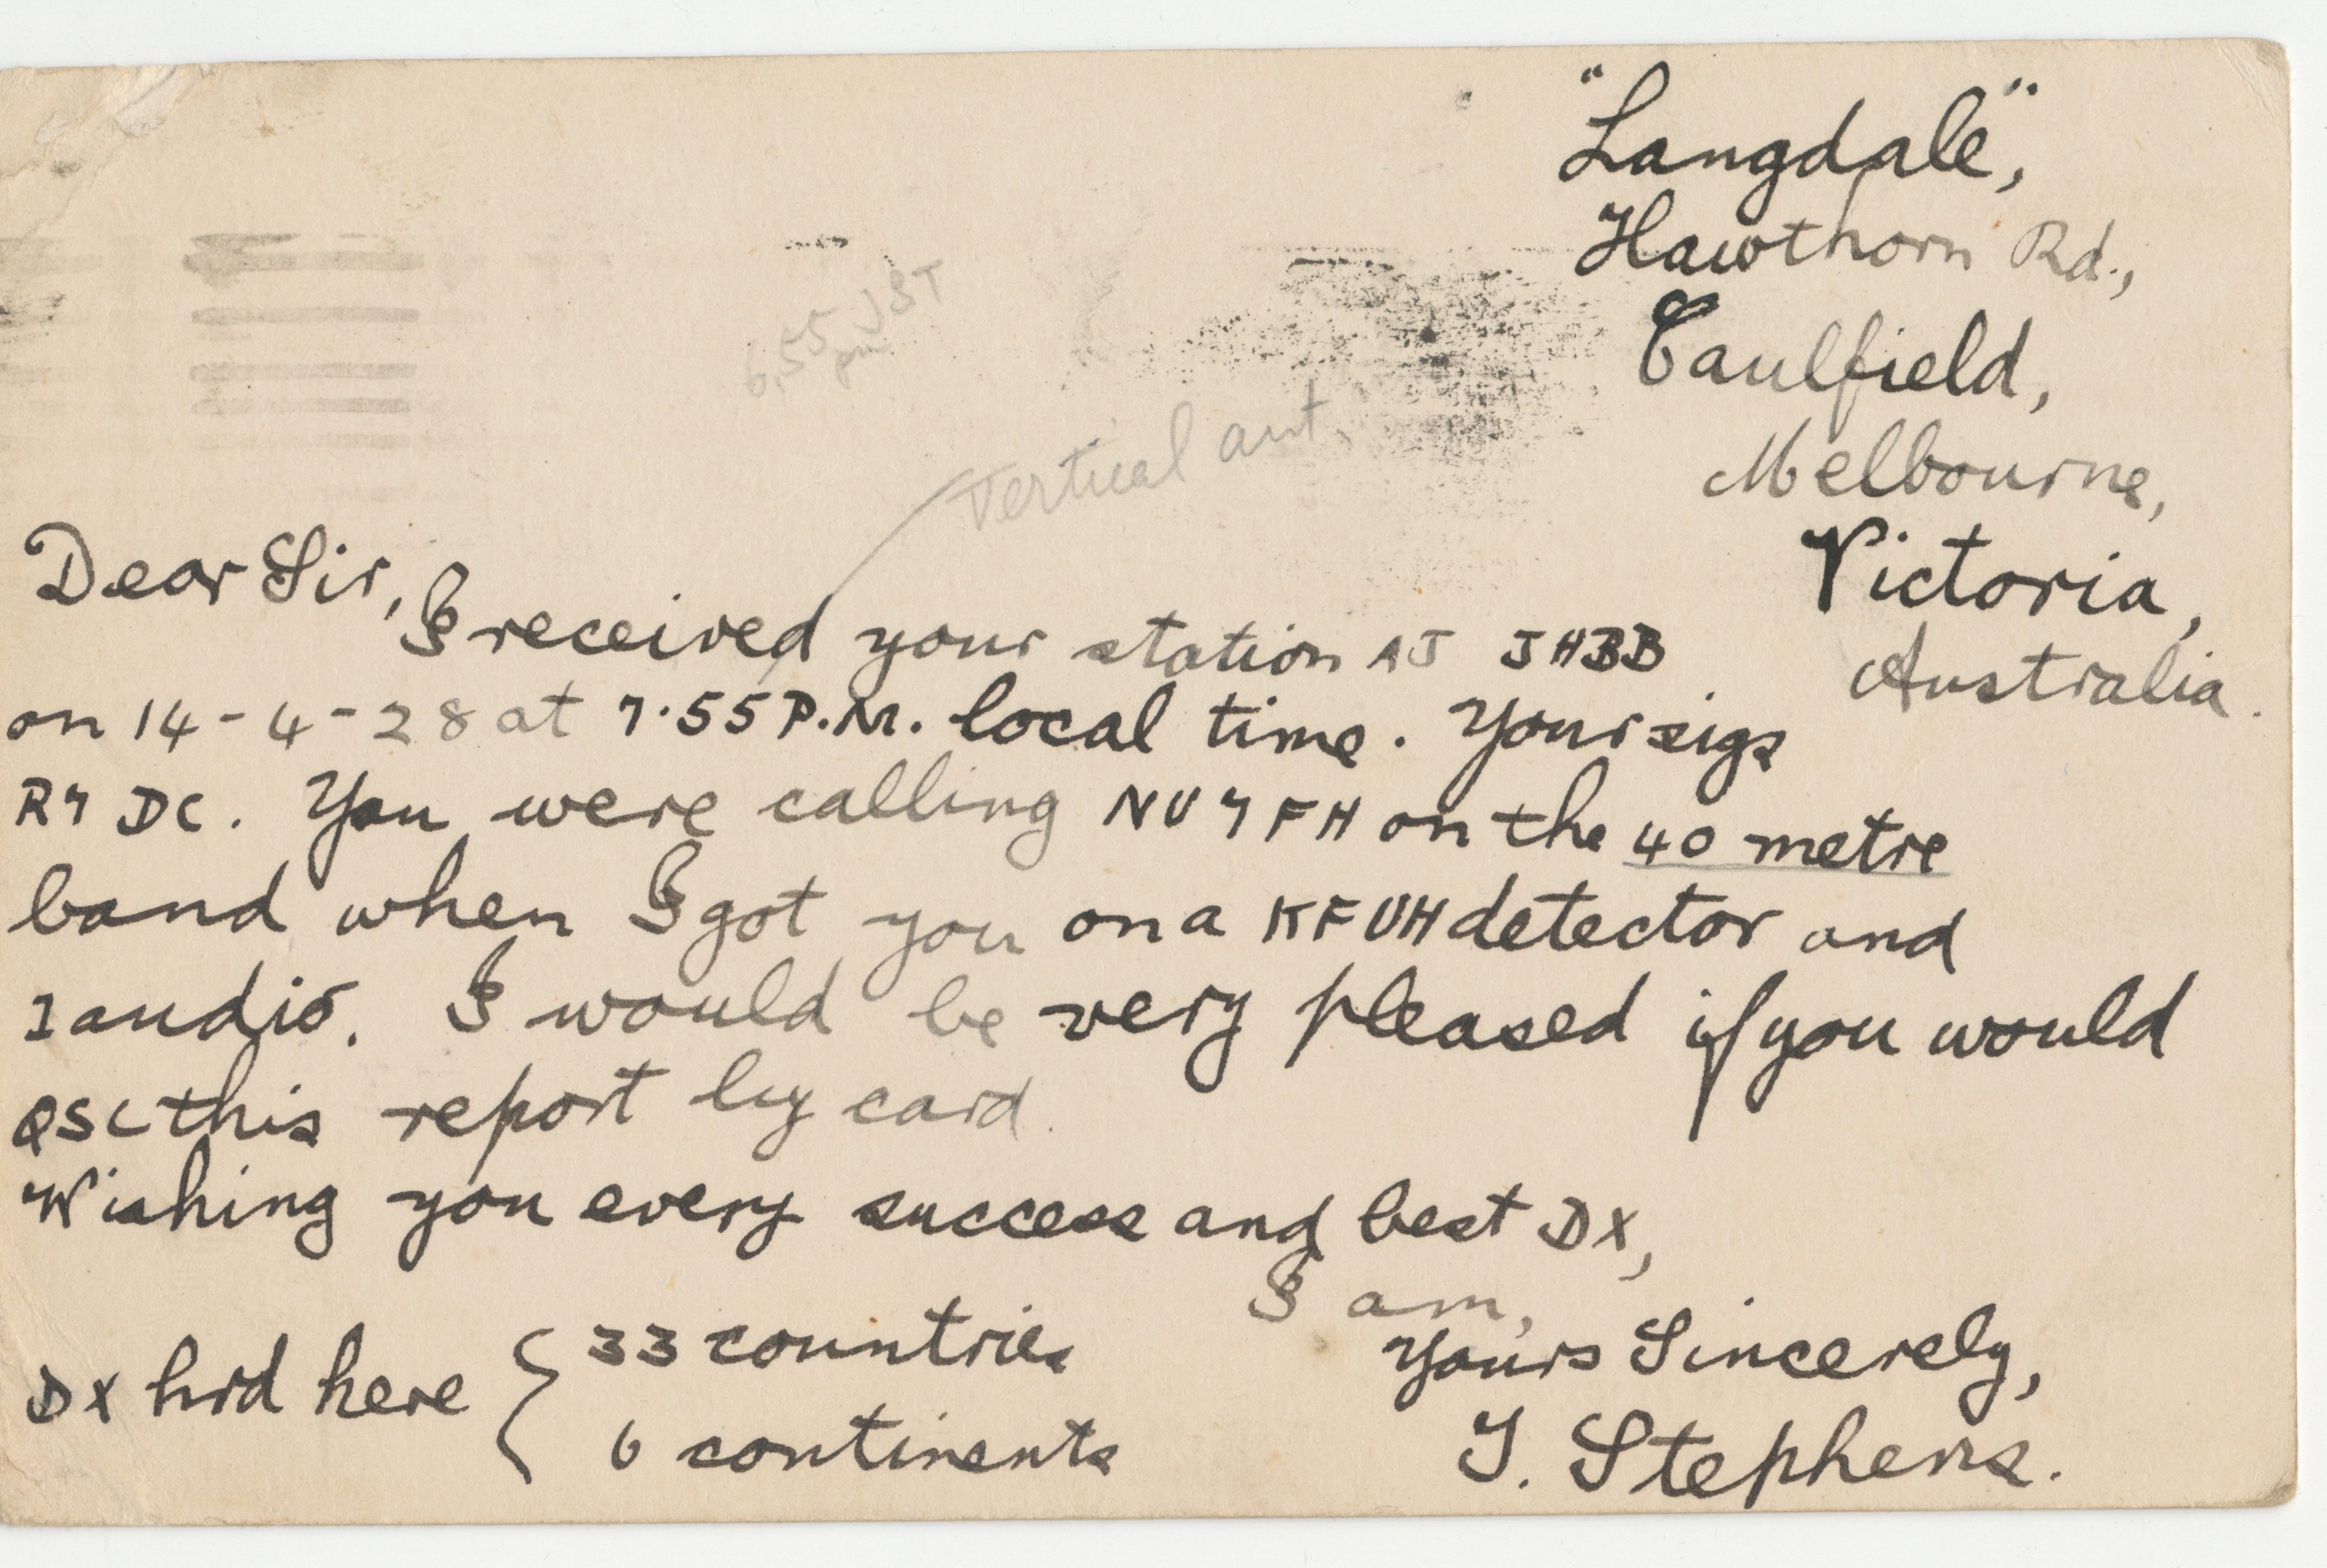 "Langdale",
Hawthorn Rd.,
Caulfield,
Melbourne,
Victoria,
Australia.
6,55 pm JST
Vertical ant.
Dear Sir,
I received your station AJ JHBB
on 14-4-28 at 7.55 P.M. local time. Your sigs
R7 DC. You were calling NU7FH on the 40 metre
band when I got you on a KFUH detector and
1 audio. I would be very pleased if you would
QSL this report by card.
Wishing you every success and best DX,
I am,
Yours Sincerely,
J. Stephens.
DX hrd here { 33 countries
6 continents